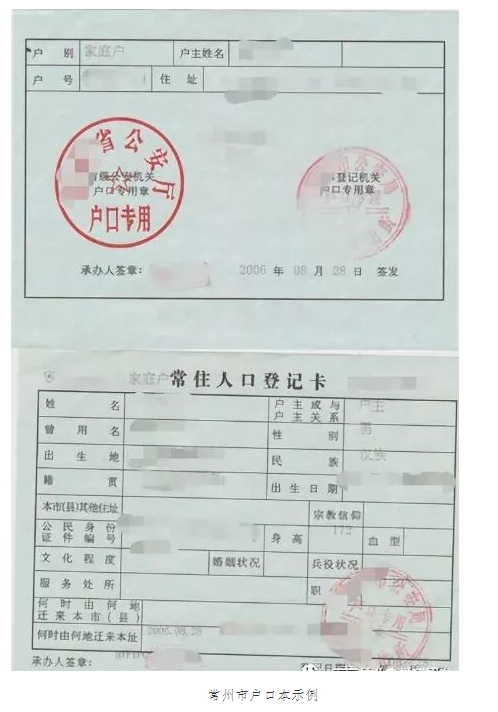 户别 家庭户 户主姓名
户号 住址
省公安厅
省级公安机关
户口专用章
户口专用
登记机关
户口专用章
承办人签章： 2006 年 08 月 28 日 签发
家庭户 常住人口登记卡
姓名 户主或与户主关系 户主
曾用名 性别 男
出生地 民族 汉族
籍贯 出生日期
本市(县)其他住址 宗教信仰
公民身份证件编号 身高 172 血型
文化程度 婚姻状况 兵役状况
服务处所 职
何时由何地迁来本市(县)
何时由何地迁来本址 2006.08.28
承办人签章：
常州市户口本示例